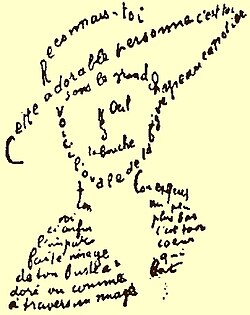 Reconnais-toi
Cette adorable personne c'est toi
Sous le grand chapeau canotier
Œil
Nez
la bouche
Voici l'ovale de ta figure
Ton
Cou exquis
voi
ci enfin
l'impar
faite image
de ton buste a
doré vu comme
à travers un nuage
un peu
plus bas
c'est ton
coeur
qui
bat